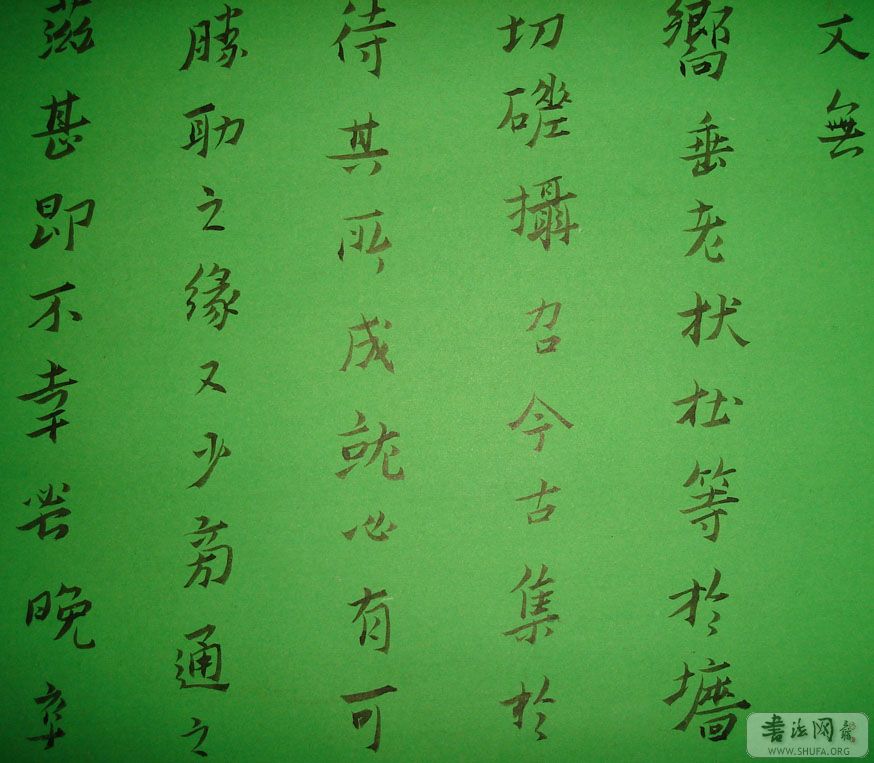 無
嚮垂老狀杜等於墻
切磋攝召今古集於
待其所成就必有可
勝助之緣又少旁通之
茲甚即不幸晚卒
書法网
WWW.SHUFA.ORG